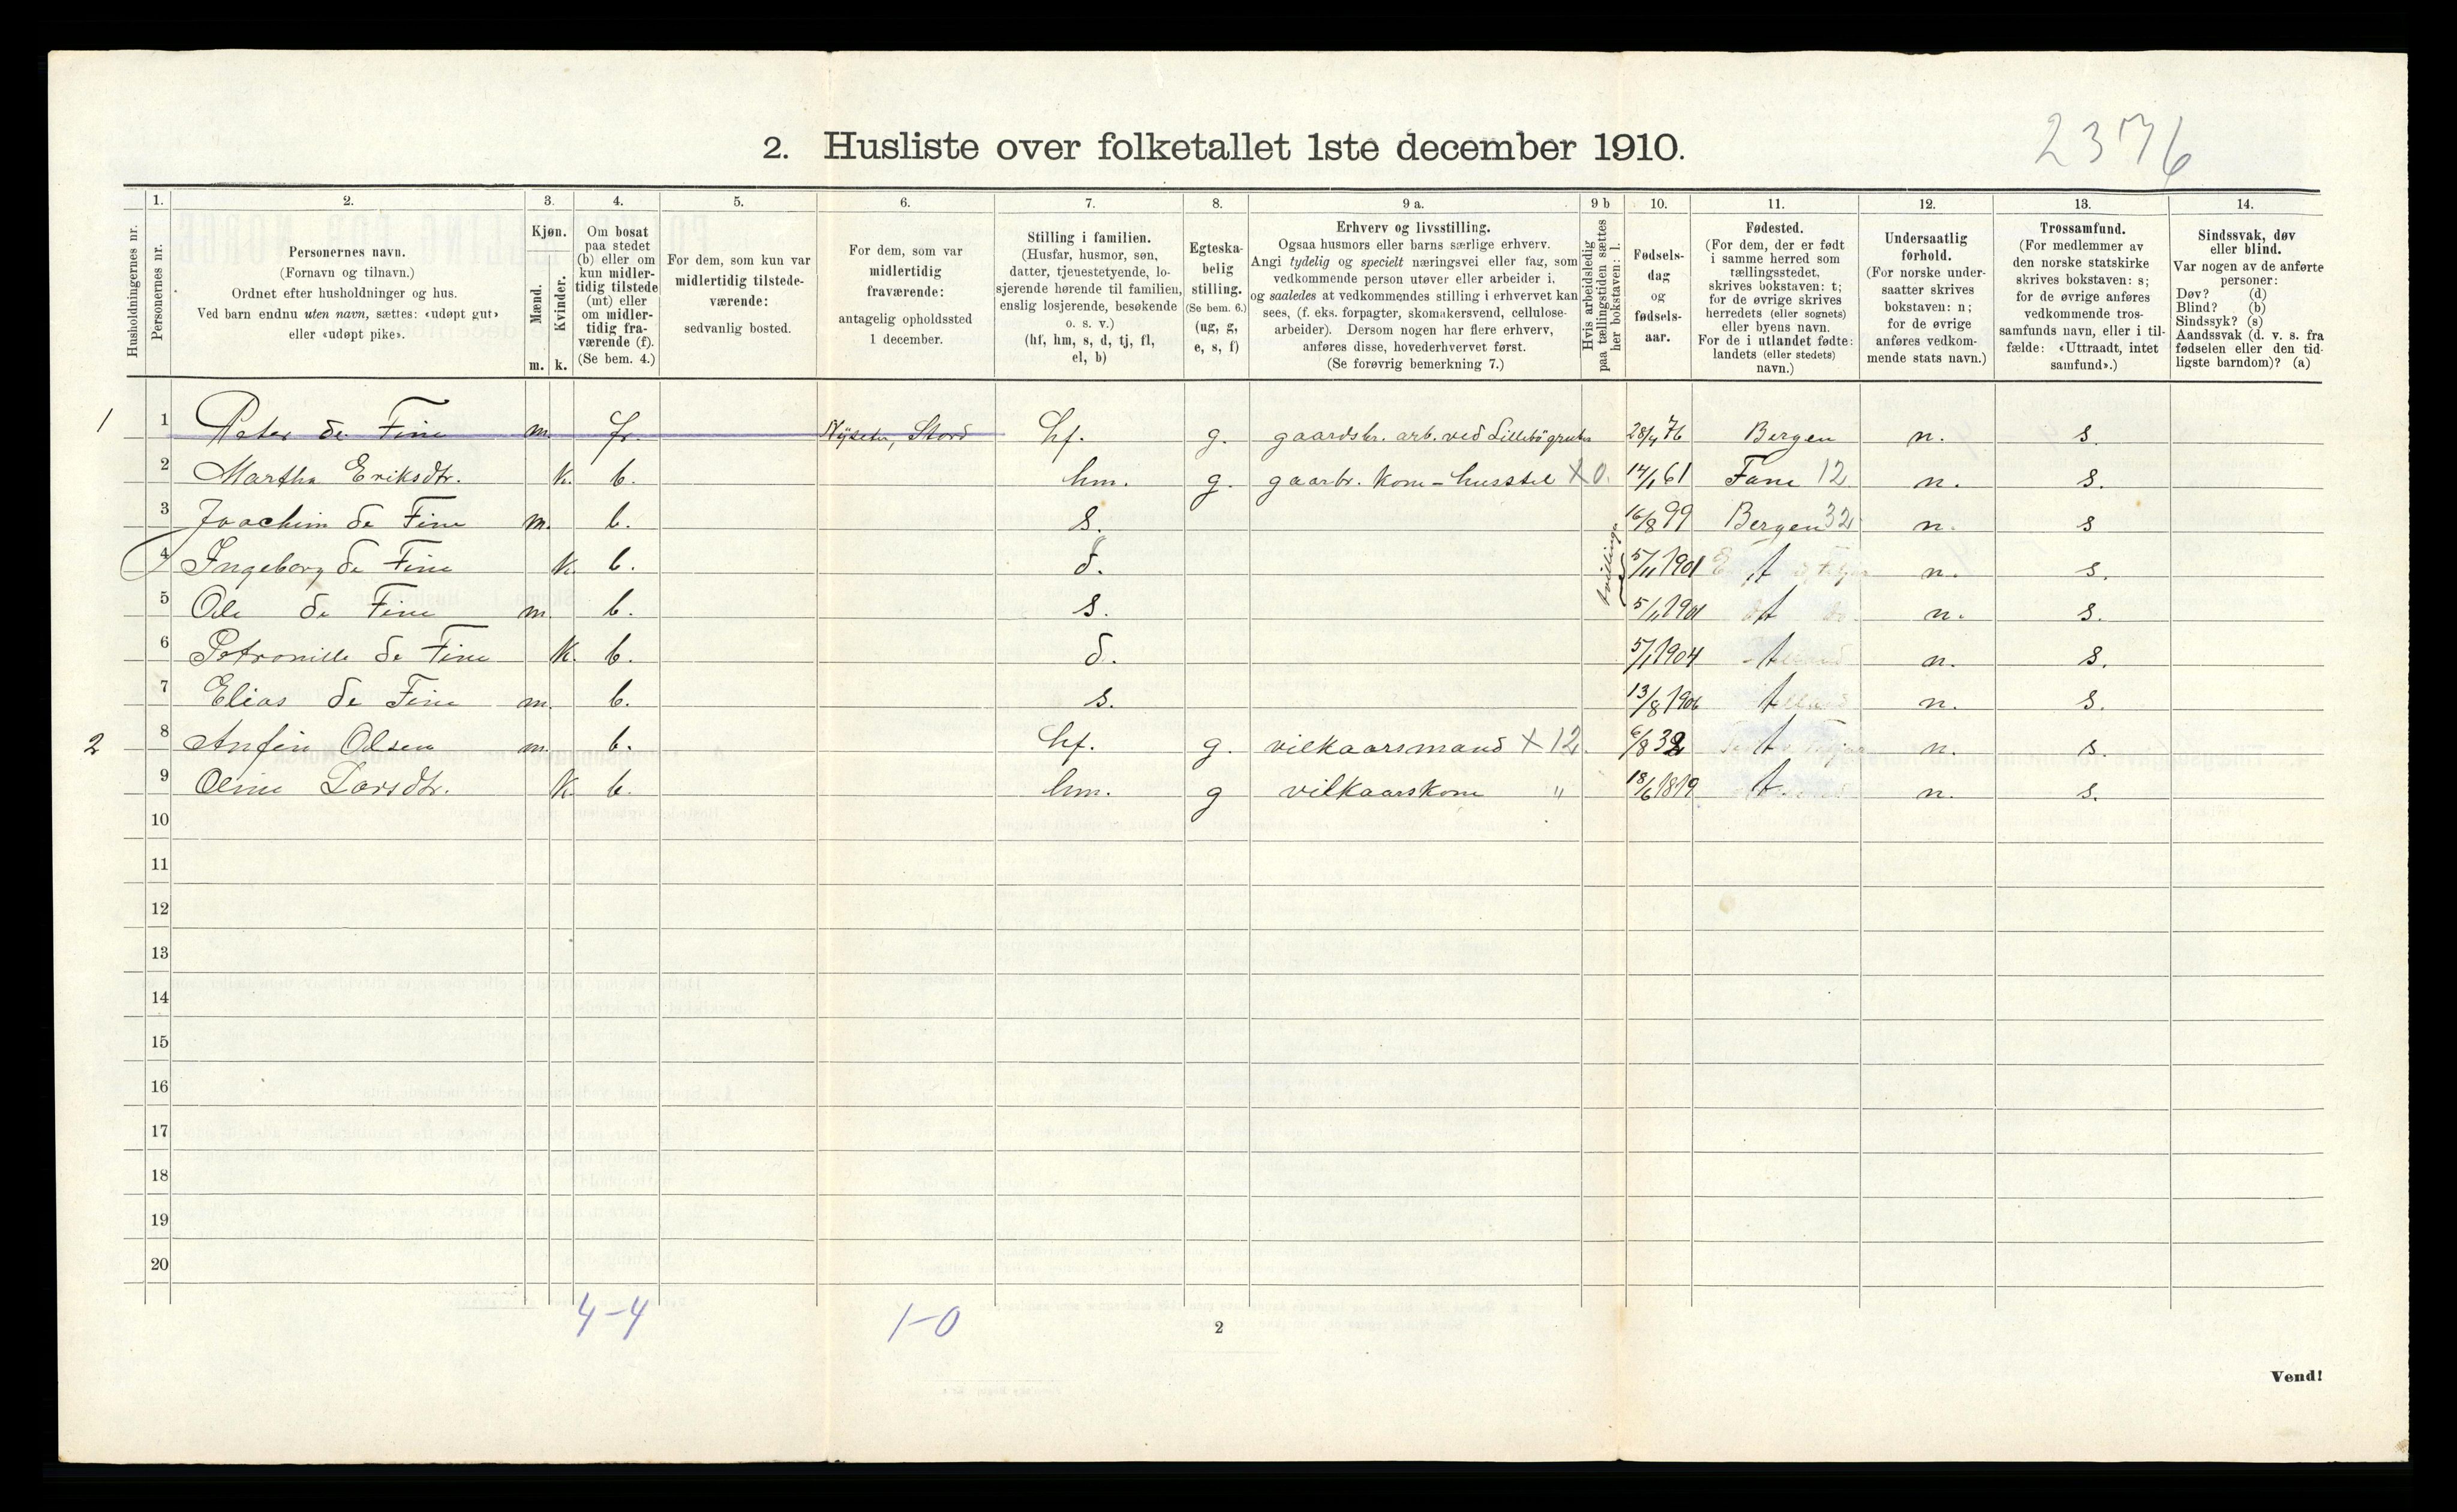 2376
2. Husliste over folketallet 1ste december 1910.
Husholdningernes nr.
1.
Personernes nr.
2.
Personernes navn.
(Fornavn og tilnavn.)
Ordnet efter husholdninger og hus.
Ved barn endnu uten navn, sættes: «udøpt gut»
eller «udøpt pike».
3.
Kjøn.
Mænd.
Kvinder.
m. k.
4.
Om bosat
paa stedet
(b) eller om
kun midler-
tidig tilstede
(mt) eller
om midler-
tidig fra-
værende (f).
(Se bem. 4.)
5.
For dem, som kun var
midlertidig tilstede-
værende:
sedvanlig bosted.
6.
For dem, som var
midlertidig
fraværende:
antagelig opholdssted
1 december.
7.
Stilling i familien.
(Husfar, husmor, søn,
datter, tjenestetyende, lo-
sjerende hørende til familien,
enslig losjerende, besøkende
o. s. v.)
(hf, hm, s, d, tj, fl,
el, b)
8.
Egteska-
belig
stilling.
(Se bem. 6.)
(ug, g,
e, s, f)
9 a.
Erhverv og livsstilling.
Ogsaa husmors eller barns særlige erhverv.
Angi tydelig og specielt næringsvei eller fag, som
vedkommende person utøver eller arbeider i,
og saaledes at vedkommendes stilling i erhvervet kan
sees, (f. eks. forpagter, skomakersvend, cellulose-
arbeider). Dersom nogen har flere erhverv,
anføres disse, hovederhvervet først.
(Se forøvrig bemerkning 7.)
9 b
Hvis arbeidsledig
paa tællingstiden sættes
her bokstaven: l.
10.
Fødsels-
dag
og
fødsels-
aar.
11.
Fødested.
(For dem, der er født
i samme herred som
tællingsstedet,
skrives bokstaven: t;
for de øvrige skrives
herredets (eller sognets)
eller byens navn.
For de i utlandet fødte:
landets (eller stedets)
navn.)
12.
Undersaatlig
forhold.
(For norske under-
saatter skrives
bokstaven: n;
for de øvrige
anføres vedkom-
mende stats navn.)
13.
Trossamfund.
(For medlemmer av
den norske statskirke
skrives bokstaven: s;
for de øvrige anføres
vedkommende tros-
samfunds navn, eller i til-
fælde: «Uttraadt, intet
samfund».)
14.
Sindssvak, døv
eller blind.
Var nogen av de anførte
personer:
Døv? (d)
Blind? (b)
Sindssyk? (s)
Aandssvak (d. v. s. fra
fødselen eller den tid-
ligste barndom)? (a)
1 1 Peter de Fine m. fr. Nysæter, Stord hf. g. gaardbr. arb. ved Lillebö gruber 28/4 76 Bergen n. s.
2 Martha Eriksdtr. k. b. hm. g. gaarbr. kone - husstel X 0. 14/1 61 Fane 12 n. s.
3 Joachim de Fine m. b. s. 16/8 99 Bergen 32 n. s
4 Ingeborg de Fine k. b. d. tvillinger 5/11 1901 t n. s.
5 Ole de Fine m. b. s. 5/11 1901 t n. s.
6 Petronille de Fine k. b. d. 5/1 1904 t n. s.
7 Elias de Fine m. b. s. 13/8 1906 t n. s.
2 8 Anfin Olsen m. b. hf. g. vilkaarsmand X 12. 6/8 32 t n. s.
9 Oline Larsdtr. k. b. hm. g vilkaarskone " 18/6 1819 t. n. s.
10
11
12
13
14
15
16
17
18
19
20
4-4
1-0
2
Vend!